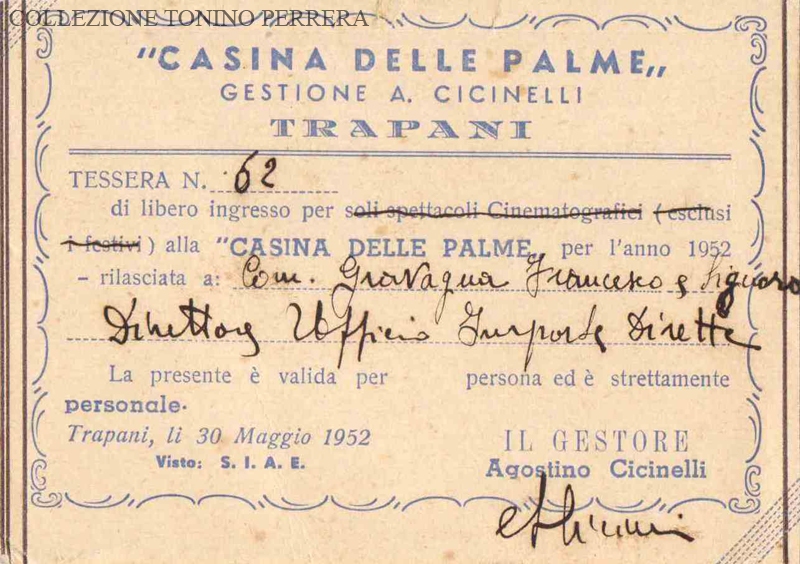 COLLEZIONE TONINO PERRERA
"CASINA DELLE PALME„
GESTIONE A. CICINELLI
TRAPANI
TESSERA N. 62
di libero ingresso per soli spettacoli Cinematografici (esclusi
i festivi) alla "CASINA DELLE PALME„ per l'anno 1952
- rilasciata a: Com. Gravagna Francesco e Signora
Direttore Ufficio Imposte Dirette
La presente è valida per persona ed è strettamente
personale.
Trapani, li 30 Maggio 1952
IL GESTORE
Visto: S. I. A. E.
Agostino Cicinelli